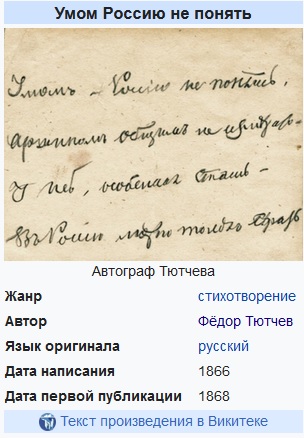 Умом Россию не понять
Умомъ – Россію не понять,
Аршиномъ общимъ не измѣрить
У ней, особенная стать –
Въ Россію можно только
Автограф Тютчева
Жанр стихотворение
Автор Фёдор Тютчев
Язык оригинала русский
Дата написания 1866
Дата первой публикации 1868
Текст произведения в Викитеке